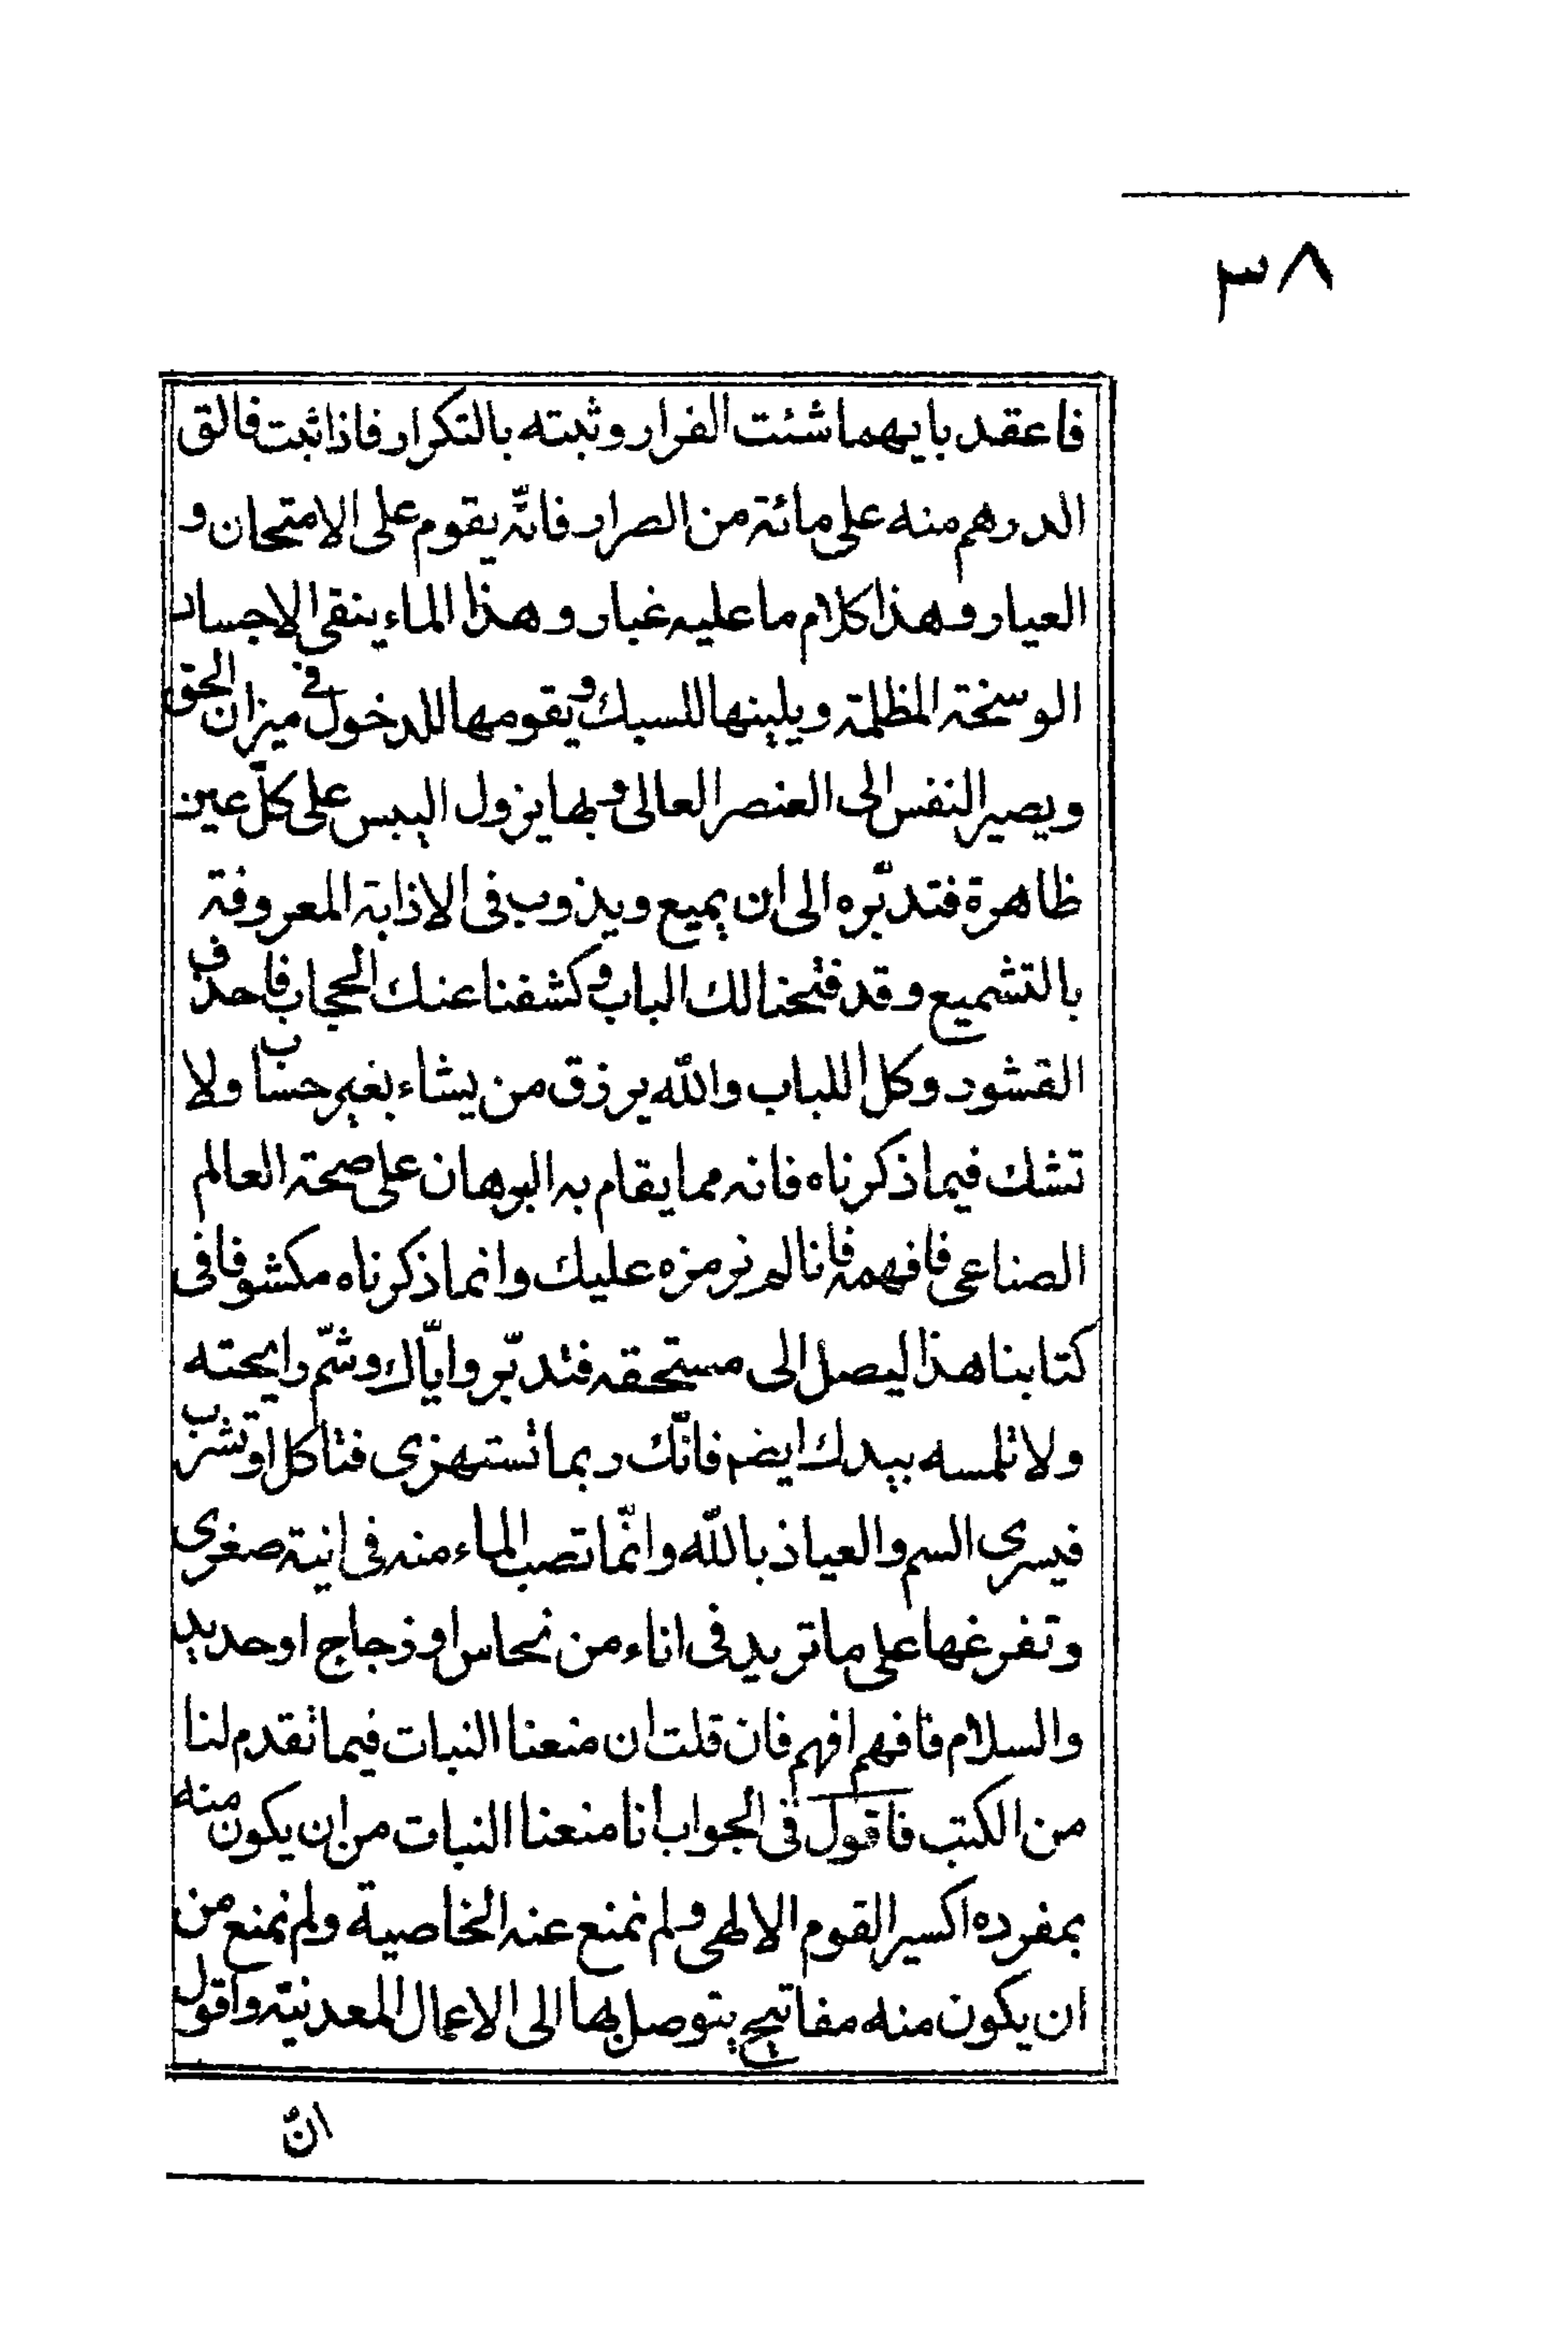 ٣٨
فاعقد بايهما شئت الفرار وثبته بالتكرار فاذا ثبت فالق
الدرهم منه على مائة من الصرار فانّه يقوم على الامتحان و
العيار وهذا كلام ما عليه غبار وهذا الماء ينقى الاجساد
الوسخة المظلمة ويلينها للسبك ويقومها للدخول في ميزان الحق
ويصير النفس الى العنصر العالى وبها يزول اليبس على كلّ عين
ظاهرة فتدبّره الى ان يميع ويذوب فى الاذابة المعروفة
بالتشميع وقد فتحنا لك الباب وكشفنا عنك الحجاب فاحذف
القشور وكل اللباب والله يرزق من يشاء بغير حساب ولا
تشك فيما ذكرناه فانه مما يقام به البرهان على صحة العالم
الصناعى فافهمه فانا لم نرمزه عليك وانما ذكرناه مكشوفا فى
كتابنا هذا ليصل الى مستحقه فتدبّر وايّاك وشمّ رايحته
ولا تلمسه بيدك ايضم فانّك ربما تستهزى فتاكل او تشرب
فيسرى السم والعياذ بالله وانّما تصب الماء منه فى انية صغرى
وتفرغها على ما تريد فى اناء من نحاس او زجاج او حديد
والسلام فافهم افهم فان قلت ان منعنا النبات فيما تقدم لنا
من الكتب فاقول فى الجواب انا منعنا النبات من ان يكون منه
بمفرده اكسير القوم الالهى ولم نمنع عنه الخاصية ولم نمنع من
ان يكون منه مفاتيح يتوصل بها الى الاعمال المعدنية واقول
انّ